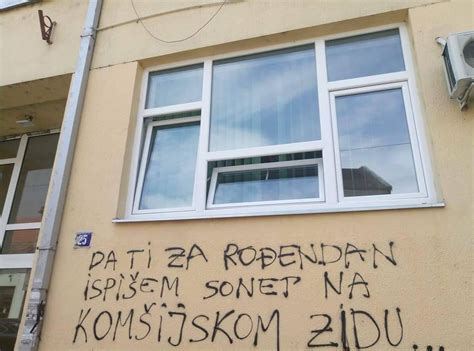 25
DA TI ZA ROĐENDAN
ISPIŠEM SONET NA
KOMŠIJSKOM ZIDU...